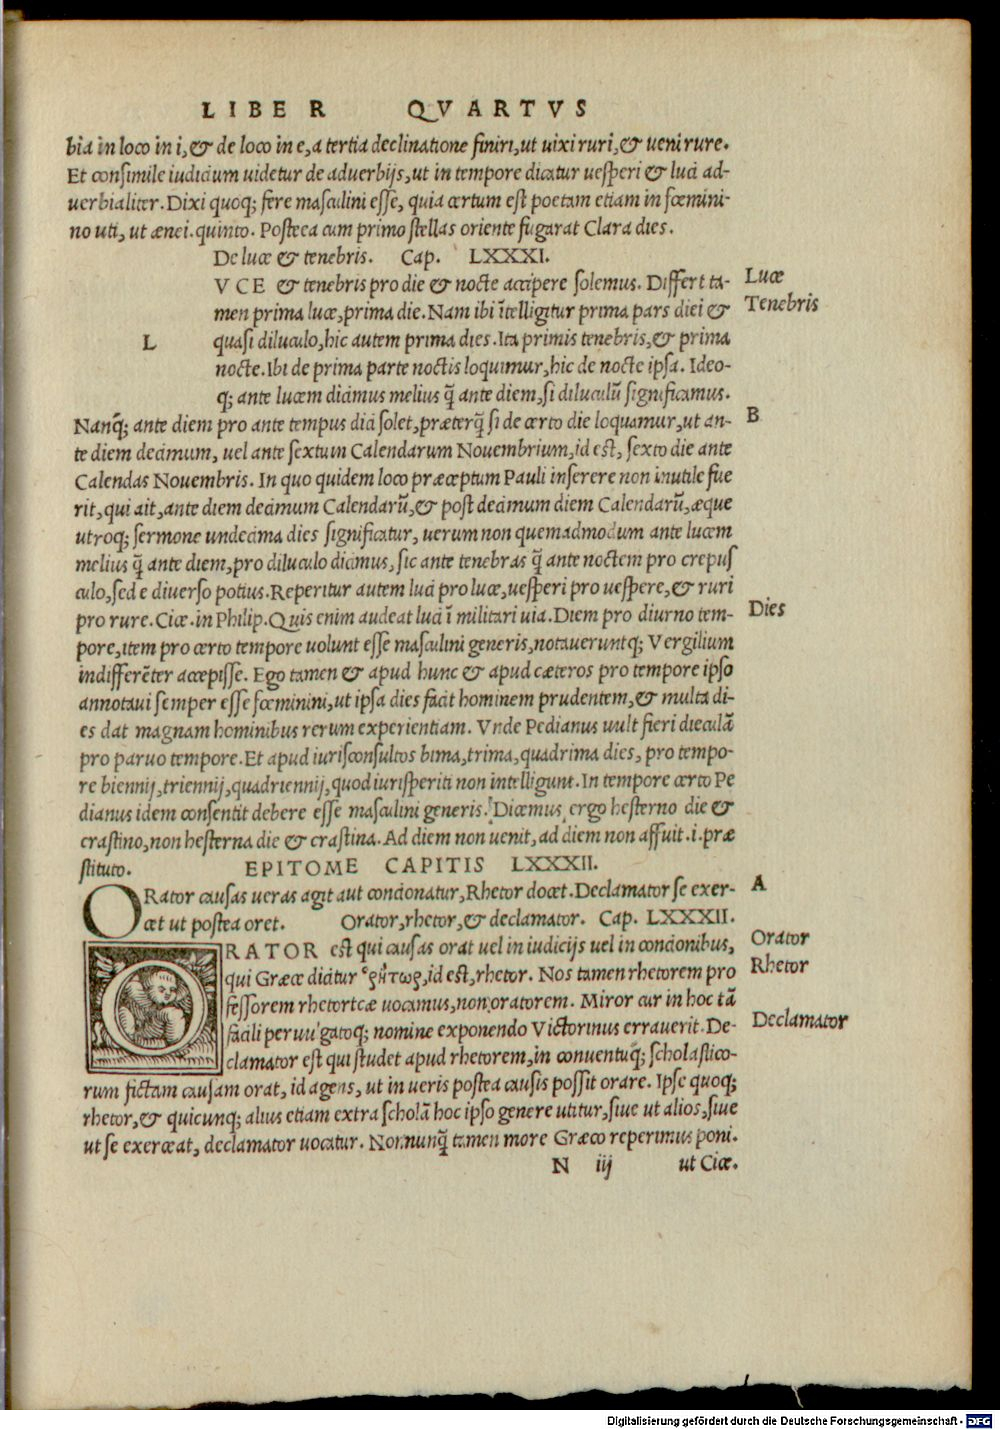 LIBER QVARTVS
bia in loco in i, & de loco in e, a tertia declinatione finiri, ut uixi ruri, & ueni rure.
Et consimile iudicium uidetur de aduerbijs, ut in tempore dicatur uesperi & luci ad-
uerbialiter. Dixi quoq; fere masculini esse, quia certum est poetam etiam in fœmini-
no uti, ut ænei. quinto. Postera cum primo stellas oriente fugarat Clara dies.
De luce & tenebris. Cap. LXXXI.
L VCE & tenebris pro die & nocte accipere solemus. Differt ta-
men prima luce, prima die. Nam ibi ītelligitur prima pars diei &
quasi diluculo, hic autem prima dies. Ita primis tenebris, & prima
nocte. Ibi de prima parte noctis loquimur, hic de nocte ipsa. Ideo-
q; ante lucem dicimus melius q̃ ante diem, si diluculū significamus.
Nanq; ante diem pro ante tempus dici solet, præterq̃ si de certo die loquamur, ut an-
te diem decimum, uel ante sextum Calendarum Nouembrium, id est, sexto die ante
Calendas Nouembris. In quo quidem loco præceptum Pauli inserere non inutile fue
rit, qui ait, ante diem decimum Calendarū, & post decimum diem Calendarū, æque
utroq; sermone undecima dies significatur, uerum non quemadmodum ante lucem
melius q̃ ante diem, pro diluculo dicimus, sic ante tenebras q̃ ante noctem pro crepus
culo, sed e diuerso potius. Reperitur autem luci pro luce, uesperi pro uespere, & ruri
pro rure. Cice. in Philip. Quis enim audeat luci ī militari uia. Diem pro diurno tem-
pore, item pro certo tempore uolunt esse masculini generis, notaueruntq; Vergilium
indifferēter accepisse. Ego tamen & apud hunc & apud cæteros pro tempore ipso
annotaui semper esse fœminini, ut ipsa dies facit hominem prudentem, & multa di-
es dat magnam hominibus rerum experientiam. Vnde Pedianus uult fieri dieculā
pro paruo tempore. Et apud iurisconsultos bima, trima, quadrima dies, pro tempo-
re biennij, triennij, quadriennij, quod iurisperiti non intelligunt. In tempore certo Pe
dianus idem consentit debere esse masculini generis. Dicemus ergo hesterno die &
crastino, non hesterna die & crastina. Ad diem non uenit, ad diem non affuit. i. præ
stituto. EPITOME CAPITIS LXXXII.
ORator causas ueras agit aut concionatur, Rhetor docet. Declamator se exer-
cet ut postea oret. Orator, rhetor, & declamator. Cap. LXXXII.
ORATOR est qui causas orat uel in iudicijs uel in concionibus,
qui Græce dicitur ῥήτωρ, id est, rhetor. Nos tamen rhetorem pro
fessorem rhetortcæ uocamus, non oratorem. Miror cur in hoc tā
facili peruu'gatoq; nomine exponendo Victorinus errauerit. De-
clamator est qui studet apud rhetorem, in conuentuq; scholastico-
rum fictam causam orat, id agens, ut in ueris postea causis possit orare. Ipse quoq;
rhetor, & quicunq; alius etiam extra scholā hoc ipso genere utitur, siue ut alios, siue
ut se exerceat, declamator uocatur. Nonnunq̃ tamen more Græco reperimus poni.
N iij ut Cice.
Luce
Tenebris
B
Dies
A
Orator
Rhetor
Declamator
Digitalisierung gefördert durch die Deutsche Forschungsgemeinschaft - DFG